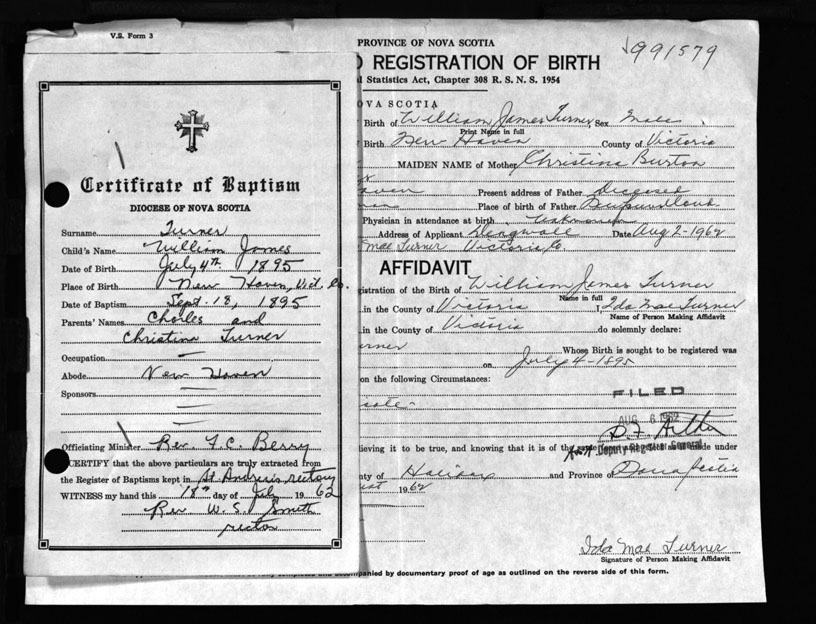 V.S. Form 3
Certificate of Baptism
DIOCESE OF NOVA SCOTIA
Surname Turner
Child's Name William James
Date of Birth July 4th 1895
Place of Birth New Haven, Vict. Co.
Date of Baptism Sept. 18, 1895
Parents' Names Charles and
Christina Turner
Occupation —
Abode New Haven
Sponsors —
—
—
Officiating Minister Rev. F. C. Berry
CERTIFY that the above particulars are truly extracted from
the Register of Baptisms kept in St. Andrew's rectory
WITNESS my hand this 18th day of July 1962
Rev W. S. Smith
rector
PROVINCE OF NOVA SCOTIA
991579
REGISTRATION OF BIRTH
Statistics Act, Chapter 308 R. S. N. S. 1954
OVA SCOTIA
Birth of William James Turner Sex Male
Print Name in full
Birth New Haven County of Victoria
MAIDEN NAME of Mother Christina Burton
Present address of Father Diseased
Place of birth of Father Newfoundland
Physician in attendance at birth Unknown
Address of Applicant Dingwall Date Aug 2-1962
Mae Turner Victoria Co.
AFFIDAVIT
istration of the Birth of William James Turner
Name in full
in the County of Victoria I, Ida Mae Turner
Name of Person Making Affidavit
in the County of Victoria do solemnly declare:
urner Whose Birth is sought to be registered was
on July 4-1895
on the following Circumstances:
FILED
AUG 6 1962
Deputy Registrar General
ieving it to be true, and knowing that it is of the made under
ty of Halifax and Province of Nova Scotia
1962
Ida Mae Turner
Signature of Person Making Affidavit
companied by documentary proof of age as outlined on the reverse side of this form.